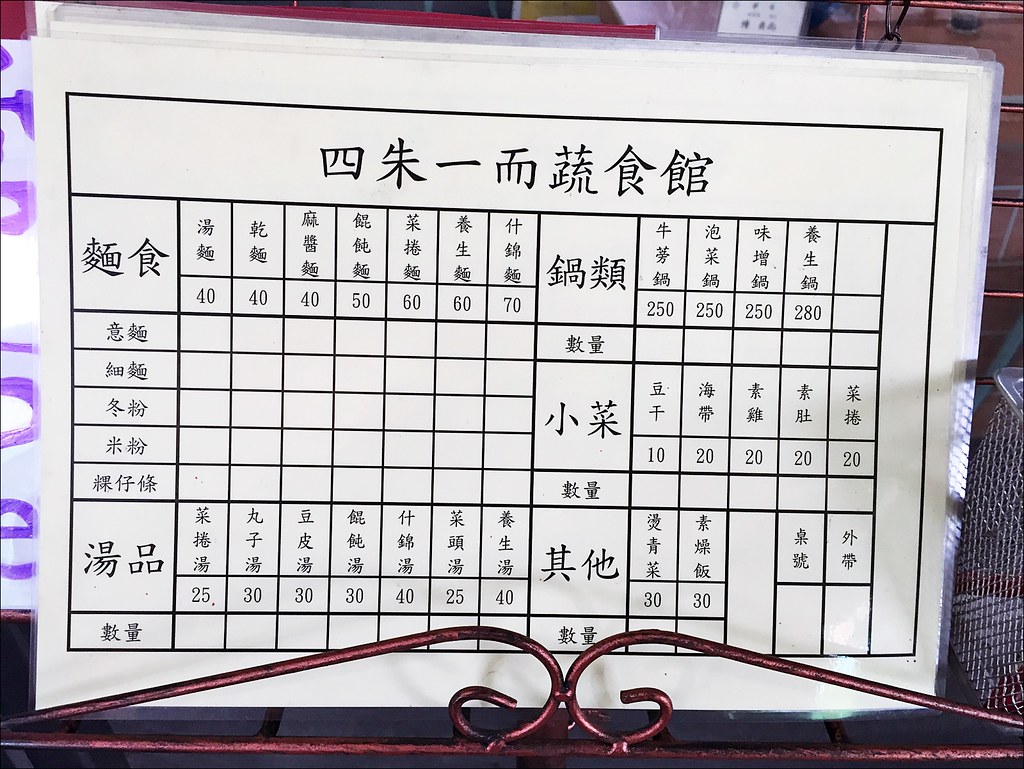 四朱一而蔬食館
麵食 湯麵 乾麵 麻醬麵 餛飩麵 菜捲麵 養生麵 什錦麵
40 40 40 50 60 60 70
意麵
細麵
冬粉
米粉
粿仔條
湯品 菜捲湯 丸子湯 豆皮湯 餛飩湯 什錦湯 菜頭湯 養生湯
25 30 30 30 40 25 40
數量
鍋類 牛蒡鍋 泡菜鍋 味增鍋 養生鍋
250 250 250 280
數量
小菜 豆干 海帶 素雞 素肚 菜捲
10 20 20 20 20
數量
其他 燙青菜 素燥飯 桌號 外帶
30 30
數量